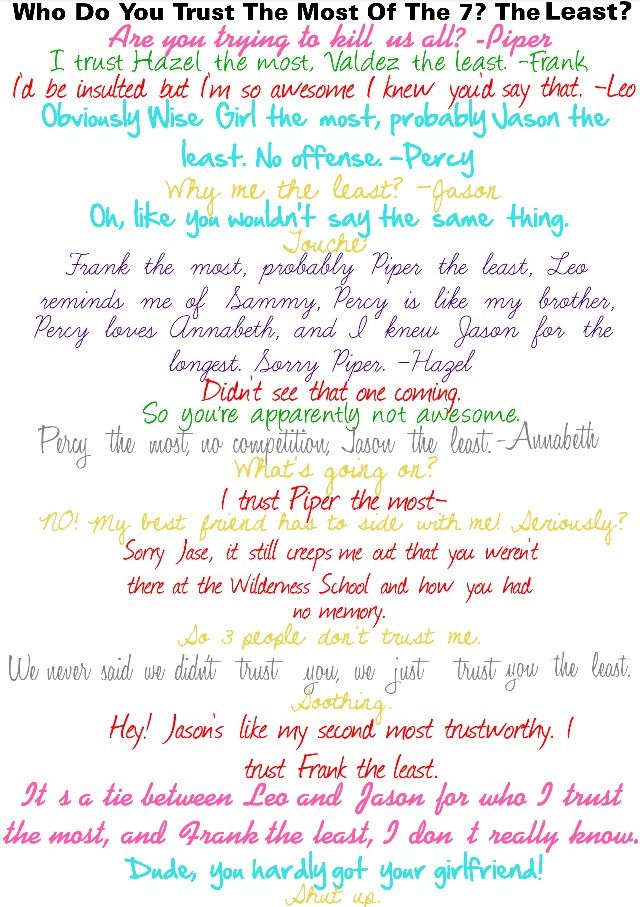 Who Do You Trust The Most Of The 7? The Least?
Are you trying to kill us all? -Piper
I trust Hazel the most, Valdez the least. -Frank
I'd be insulted but I'm so awesome I knew you'd say that. -Leo
Obviously Wise Girl the most, probably Jason the
least. No offense. -Percy
Why me the least? -Jason
Oh, like you wouldn't say the same thing.
Touche.
Frank the most, probably Piper the least, Leo
reminds me of Sammy, Percy is like my brother,
Percy loves Annabeth, and I knew Jason for the
longest. Sorry Piper. -Hazel
Didn't see that one coming.
So you're apparently not awesome.
Percy the most, no competition, Jason the least. -Annabeth
What's going on?
I trust Piper the most-
NO! My best friend has to side with me! Seriously?
Sorry Jase, it still creeps me out that you weren't
there at the Wilderness School and how you had
no memory.
So 3 people don't trust me.
We never said we didn't trust you, we just trust you the least.
Soothing.
Hey! Jason's like my second most trustworthy. I
trust Frank the least.
It s a tie between Leo and Jason for who I trust
the most, and Frank the least, I don t really know.
Dude, you hardly got your girlfriend!
Shut up.